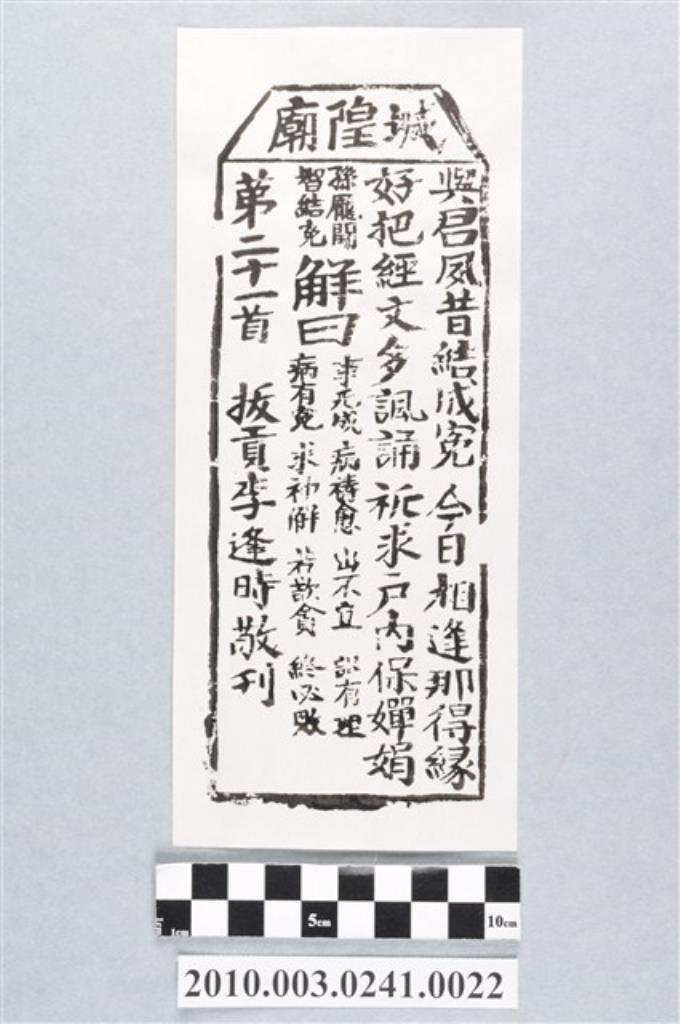 城隍廟
與君夙昔結成寃 今日相逢那得緣
好把經文多諷誦 祈求戶內保嬋娟
孫龐鬪智結寃
解曰
事无成 病待愈 出不宜 訟有理
病有寃 求神解 若欲貪 終必敗
第二十一首 拔貢李逢時敬刊
1cm 5cm 10cm
2010.003.0241.0022